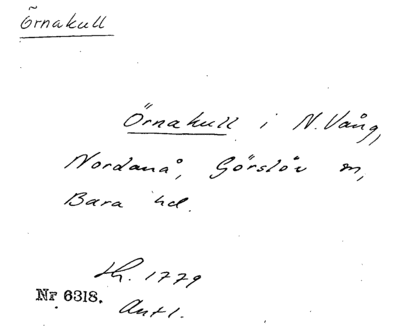 Örnakull
Örnakull i N. Vång,
Nordanå, Görslöv sn,
Bara hd.
1779
Nr 6318.